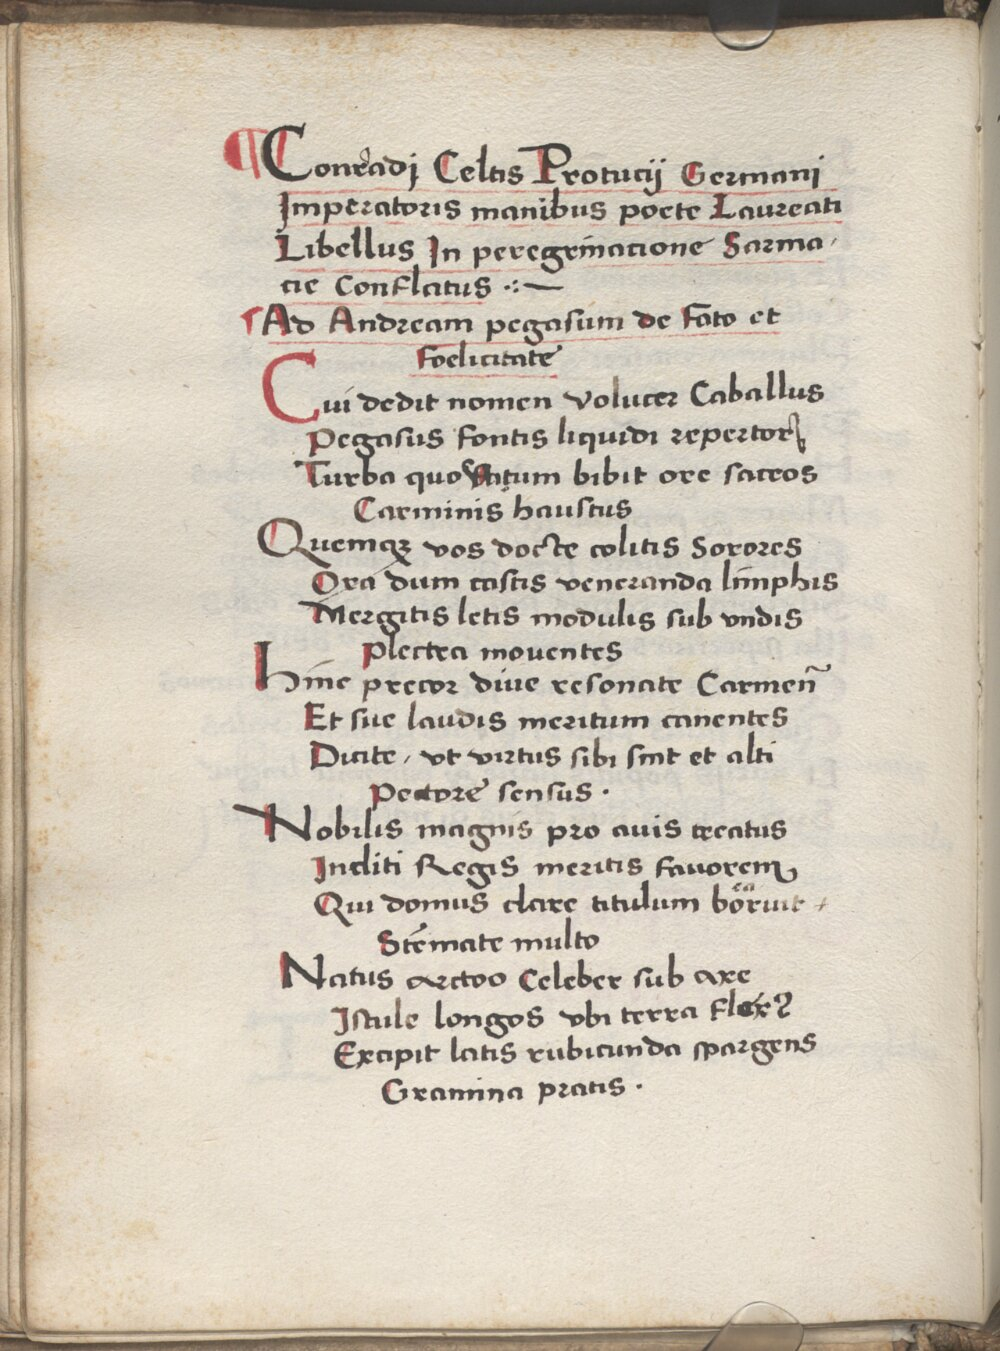 ¶ Conradj Celtis Protucij Germani
Imperatoris manibus poete Laureati
Libellus In peregrinacione Sarma-
cie Conflatus
Ad Andream pegasum de fato et
foelicitate
Cui dedit nomen volucer Caballus
Pegasus fontis liquidi repertor
Turba quo vatum bibit ore sacros
Carminis haustus
Quemqz vos docte colitis Sorores
Ora dum castis veneranda limphis
Mergitis letis modulis sub vndis
Plectra mouentes
Hinc precor diue resonate Carmen
Et sue laudis meritum canentes
Dicite, vt virtus sibi sint et alti
Pectore sensus.
Nobilis magnis pro auis creatus
Incliti Regis meritis fauorem
Qui domus clare titulum
Stemate multo
Natus arctoo Celeber sub axe
Istule longos vbi terra
Excipit latis rubicunda spargens
Gramina pratis.